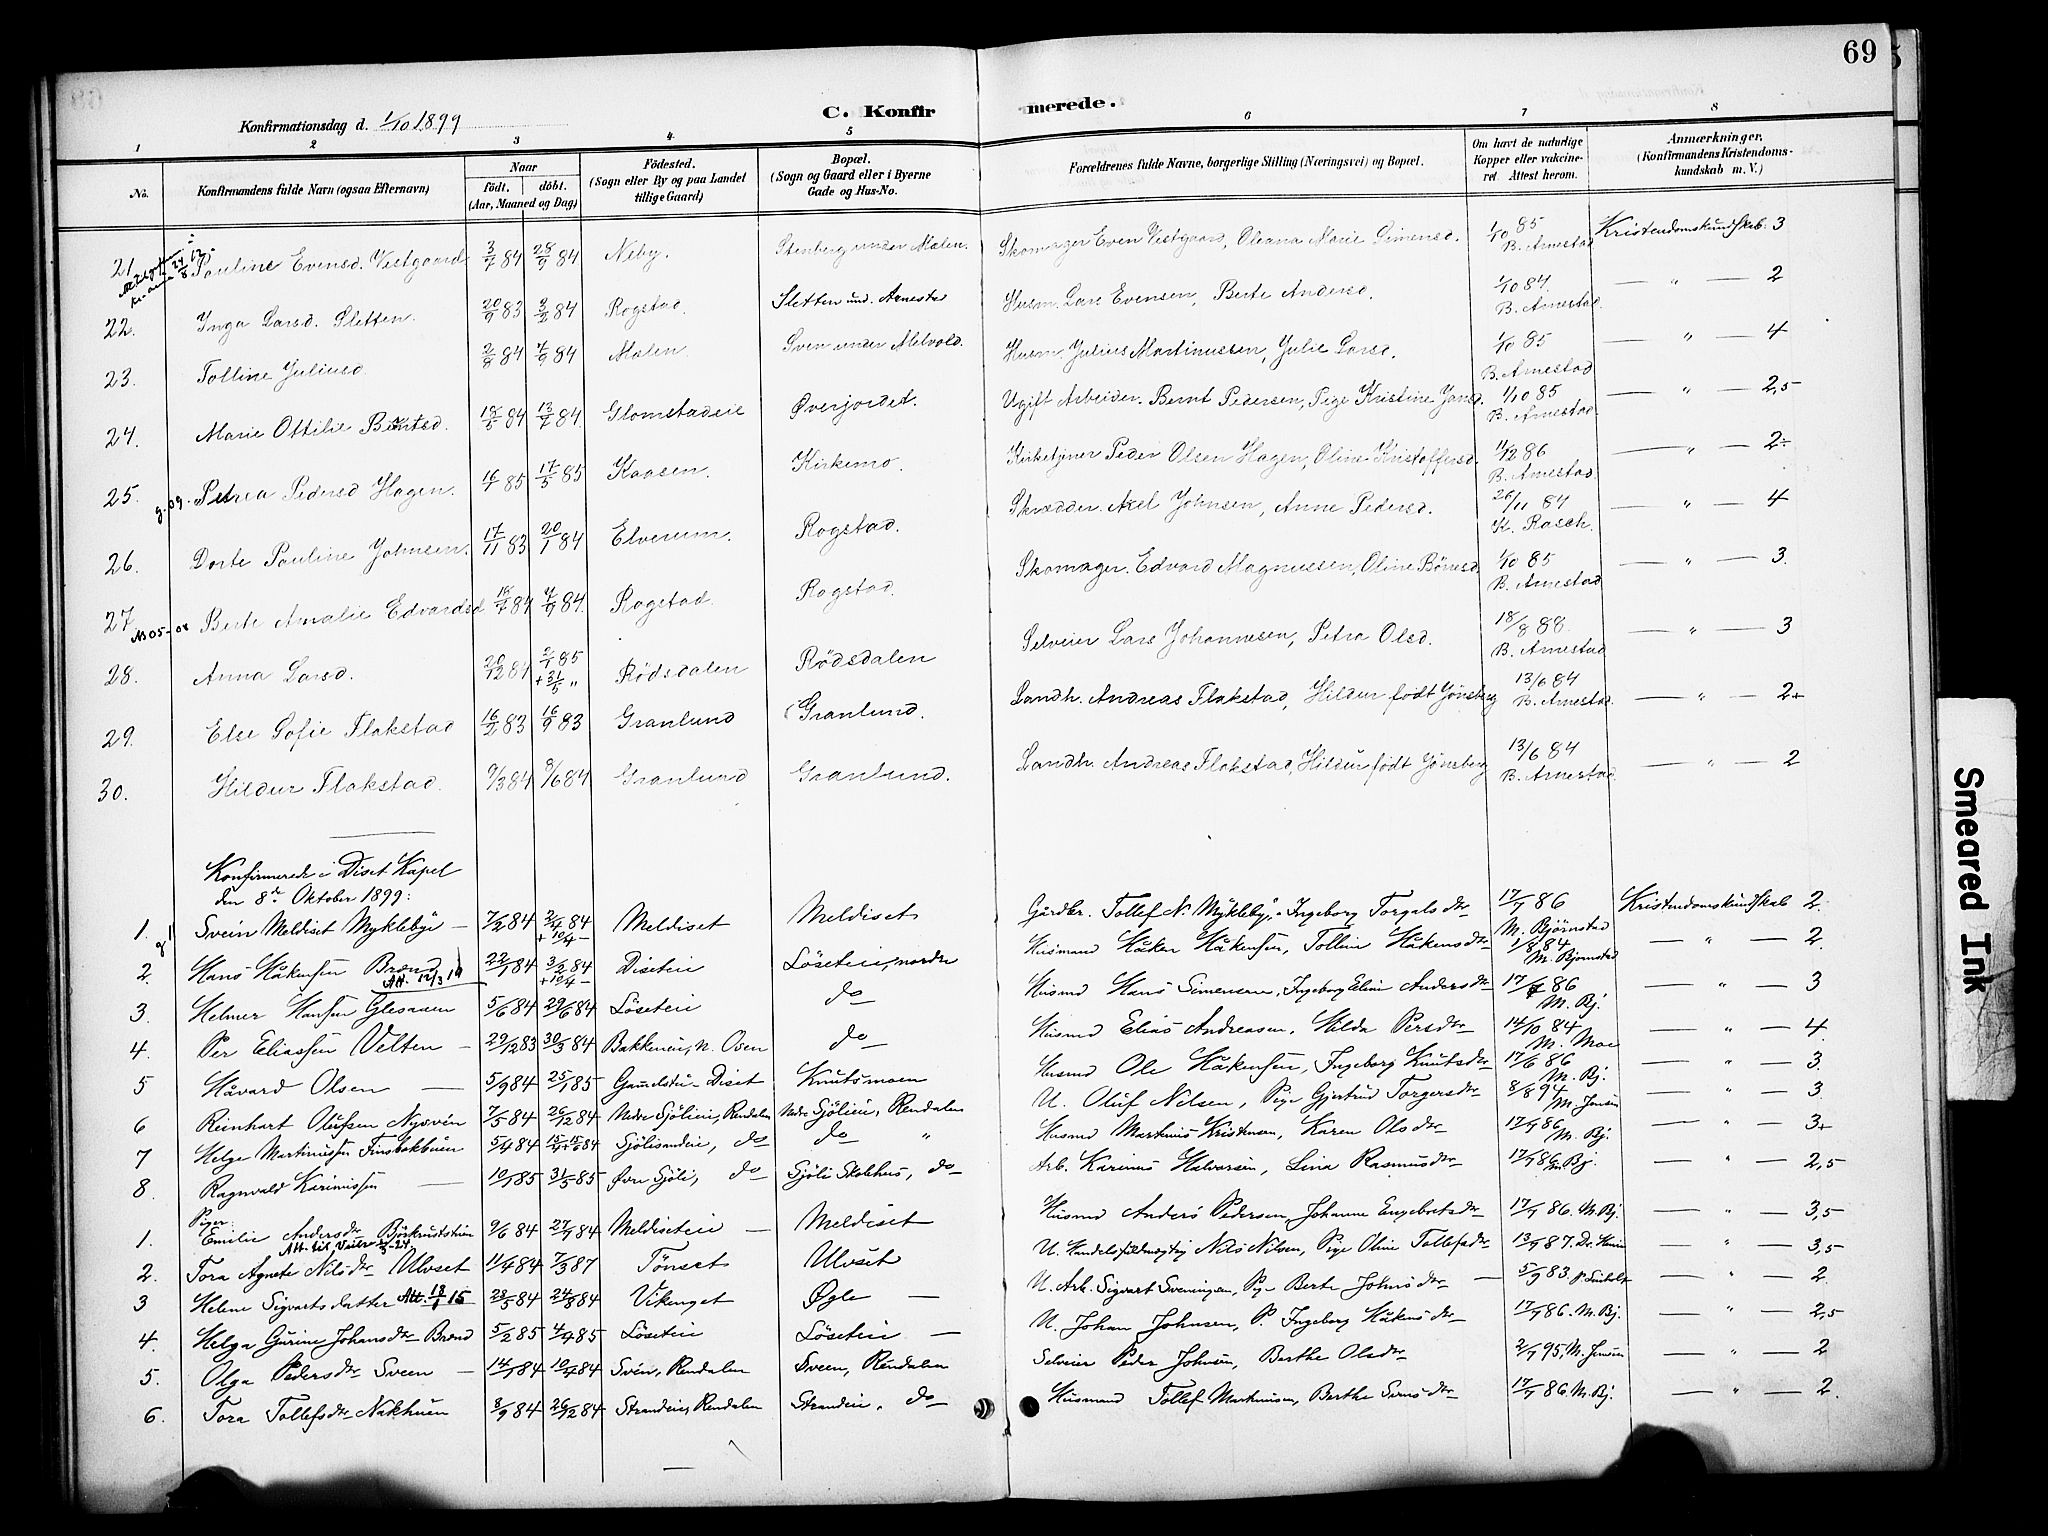 69
C. Konfirmerede.
Konfirmationsdag d. 1/10 1899
1 2 3 4 5 6 7 8
No. Konfirmandens fulde Navn (ogsaa Efternavn) Naar født, døbt. (Aar, Maaned og Dag) Fødested. (Sogn eller By og paa Landet tillige Gaard) Bopæl. (Sogn og Gaard eller i Byerne Gade og Hus-No. Forældrenes fulde Navne, borgerlige Stilling (Næringsvei) og Bopæl. Om havt de naturlige Kopper eller vaccineret. Attest herom. Anmærkninger, (Konfirmandens Kristendomskundskab m. V.)
21. Pauline Evensd. Vestgaard 3/7 84 28/9 84 Neby. Stenberg under Mælen. Skomager Even Vestgaard, Oleana Marie Simensd. 1/10 85 B. Arnestad Kristendomskundskab: 3
22. Inga Larsd. Sletten. 20/9 83 3/2 84 Rogstad. Sletten und. Arnestad Husm. Lars Evensen, Berte Andersd. 1/10 84. B. Arnestad. — " — 2
23. Tolline Juliusd. 2/8 84 7/9 84 Mælen. Sveen under Melvold. Husm. Julius Martinussen, Julie Larsd. 1/10 85 B. Arnestad — " — 4
24. Marie Ottilie Berntsd. 18/5 84 13/7 84 Glomstadeie Øverjordet. Ugift Arbeider. Bernt Pedersen, Pige Kristine Jansd. 1/10 85 B. Arnestad — " — 2,5
25. g. 09. Petrea Pedersd Hagen. 16/1 85 17/5 85 Kaasen. Kirkemo. Kirketjner Peder Olsen Hagen, Oline Kristoffersd. 11/12 86 B. Arnestad. — " — 2÷
26. Dorte Pauline Johnsen. 17/11 83 20/1 84 Elverum. Rogstad. Skrædder. Axel Johnsen, Anne Pedersd. 26/11 84 K. Rasch. — " — 4
27. Berte Amalie Edvardsd 16/7 84 7/9 84. Rogstad. Rogstad. Skomager. Edvard Magnussen, Oline Börresd. 1/10 85 B. Arnestad — " — 3.
28. Anna Larsd. 20/12 84 2/1 85 + 31/5 " Rödsdalen Rödsdalen Selveier Lars Johannesen, Petra Olsd. 18/8 88. B. Arnestad — " — 3
29. Else Sofie Flakstad 16/2 83 16/9 83 Granlund Granlund. Landh. Andreas Flakstad, Hildur født Jönsberg 13/6 84 B. Arnestad. — " — 2+
30. Hildur Flakstad. 9/3 84 8/6 84 Granlund Granlund. Landh. Andreas Flakstad, Hildur født Jönsberg 13/6 84 B. Arnestad — " — 2
Konfirmerede i Diset Kapel
den 8de Oktober 1899:
1. Svein Meldiset Myklebye — 7/2 84 2/4 84 + 10/4 — Meldiset Meldiset Gårdbr. Tollef N. Mykleby, Ingeborg Torgalsdtr 17/7 86 M. Björnstad Kristendomskundskab 2.
2. Hans Håkensen Brend 22/1 84 3/2 84 + 10/4 — Diseteie Löseteie, nordre Husmand Håken Håkensen, Tolline Håkensdtr 1/8 84 M. Bjørnstad — " — 2.
3. Helmer Hansen Glesaaen 5/6 84 29/6 84 Löseteie do Husmd Hans Simensen, Ingeborg Eline Andersdtr 17/7 86 M. Bj. — " — 3
4. Per Eliassen Velten — 29/12 83 30/3 84 Bakkeneie, N. Osen do Husmd Elias Andreasen, Hilda Persdtr 14/10 84 M. Moe — " — 4.
5 Håvard Olsen — 5/9 84 25/1 85 Diset Knutsmoen Husmd Ole Håkensen, Ingeborg Knutsdtr 17/6 86 M. Bj. — " — 3.
6 Reinhart Olufsen Nysvén 7/5 84 26/12 84 Nedre Sjölieie, Rendalen Nedre Sjölieie, Rendalen U. Oluf Nilsen, Pige Gjertrud Torgersdtr 8/8 94 M. Jensen — " — 3.
7 Helge Martinussen Finsbakbuen 5/4 84 Sjölisandeie, do do " Husmd Martinus Kristensen, Karen Olsdtr 17/7 86 M. Bj. — " — 3+
8. Ragnvald Karinussen — 10/1 85 31/5 85 Øvre Sjöli, do Sjöli Skolehus, do Arb. Karinus Halvorsen, Lina Rasmusdtr 17/7 86 M. Bj. — " — 2,5
Piger:
1. Emilie Andersdtr Björkrustsveen 9/6 84 27/7 84 Meldiseteie — Meldiset Husmd Anders Pedersen, Johanne Engebretsdtr 17/7 86. M. Bj. — " — 3,5
2. Tora Agnete Nilsdtr Ulvset 11/4 84 7/3 87 Tönset Ulvset U. Handelsfuldmægtig Nils Nilsen, Pige Oline Tollefsdtr 13/7 87. — " — 3,5
3 Helene Sigvartsdatter Att. 18/1 15 23/5 84 24/8 84 Vikenget Øgle — U. Arb. Sigvart Sveningsen, Pge Berte Johnsdtr — 5/9 83. — " — 2.
4. Helga Gurine Johansdtr Brend 5/2 85 4/4 85 Löseteie Löseteie — U. Johan Johnsen, P. Ingeborg Håkensdtr 17/7 86. M. Bj. — " — 2,5
5. Olga Pedersdtr Sveen — 14/1 84 10/4 84 Svén, Rendalen Sveen, Rendalen Selveier Peder Johnsen, Berthe Olsdtr 2/7 95, M. Jensen — " — 2
6. Tora Tollefsdtr Nakhuen 8/9 84 26/12 84 Strandeie, Rendalen Strandeie, do Husmand Tollef Martinusen, Berthe Svensdtr 17/7 86. M. Bj. — " — 2.
Smeared Ink